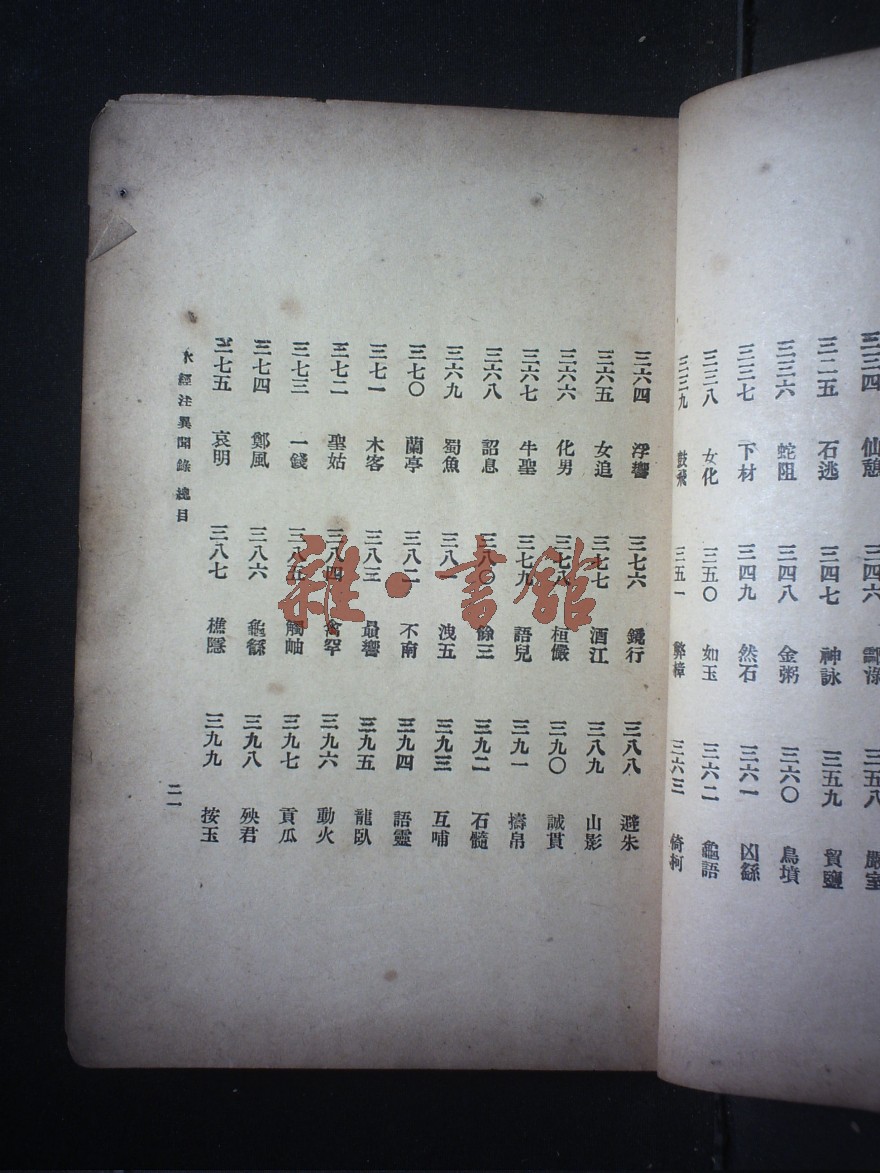 三三四 仙憩 三四六 三五八
三二五 石逃 三四七 神詠 三五九 貿鹽
三三六 蛇阻 三四八 金粥 三六〇 鳥墳
三三七 下材 三四九 然石 三六一 凶繇
三三八 女化 三五〇 如玉 三六二 龜語
三三九 鼓飛 三五一 弊樟 三六三 倚柯
三六四 浮響 三七六 三八八 避朱
三六五 女追 三七七 酒江 三八九 山影
三六六 化男 三七八 桓儼 三九〇 誠貫
三六七 牛聖 三七九 語兒 三九一 擣帛
三六八 詔息 三八〇 餘三 三九二 石髓
三六九 蜀魚 三八一 洩五 三九三 互哺
三七〇 蘭亭 三八二 不南 三九四 語靈
三七一 木客 三八三 最響 三九五 龍臥
三七二 聖姑 三八四 三九六 動火
三七三 一錢 三八五 觸岫 三九七 貢瓜
三七四 鄭風 三八六 龜繇 三九八 殃君
三七五 哀明 三八七 樵隱 三九九 按玉
水經注異聞錄 總目 二一
雜·書館